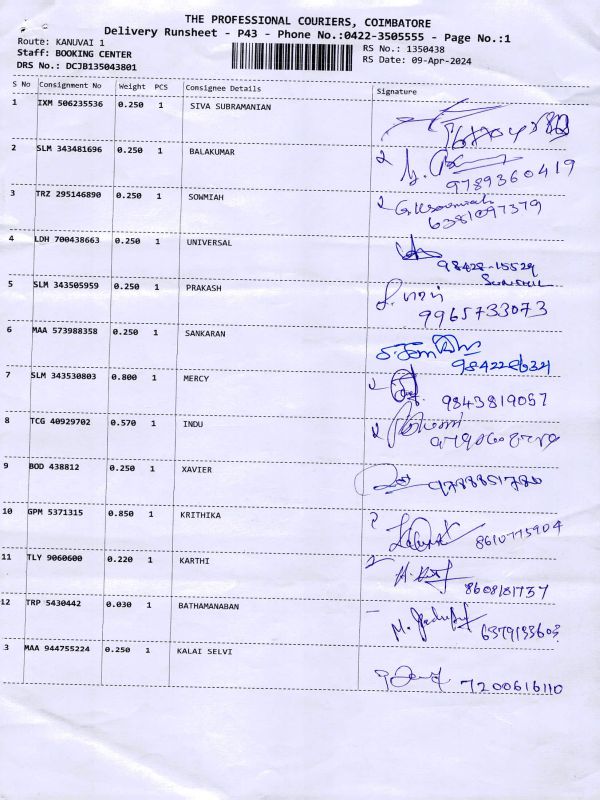 THE PROFESSIONAL COURIERS, COIMBATORE
Delivery Runsheet - P43 - Phone No.:0422-3505555 - Page No.:1
Route: KANUVAI 1
RS No.: 1350438
Staff: BOOKING CENTER
RS Date: 09-Apr-2024
DRS No.: DCJB135043801
S No Consignment No Weight PCS Consignee Details Signature
1 IXM 506235536 0.250 1 SIVA SUBRAMANIAN
2 SLM 343481696 0.250 1 BALAKUMAR
9789360419
3 TRZ 295146890 0.250 1 SOWMIAH
G.K Sowmiah
6381097379
4 LDH 700438663 0.250 1 UNIVERSAL
98428-15529
5 SLM 343505959 0.250 1 PRAKASH
9965733073
6 MAA 573988358 0.250 1 SANKARAN
7 SLM 343530803 0.800 1 MERCY
9843819057
8 TCG 40929702 0.570 1 INDU
9 BOD 438812 0.250 1 XAVIER
9788851780
10 GPM 5371315 0.850 1 KRITHIKA
8610775904
11 TLY 9060600 0.220 1 KARTHI
8608101737
12 TRP 5430442 0.030 1 BATHAMANABAN
6379133603
3 MAA 944755224 0.250 1 KALAI SELVI
7200616110